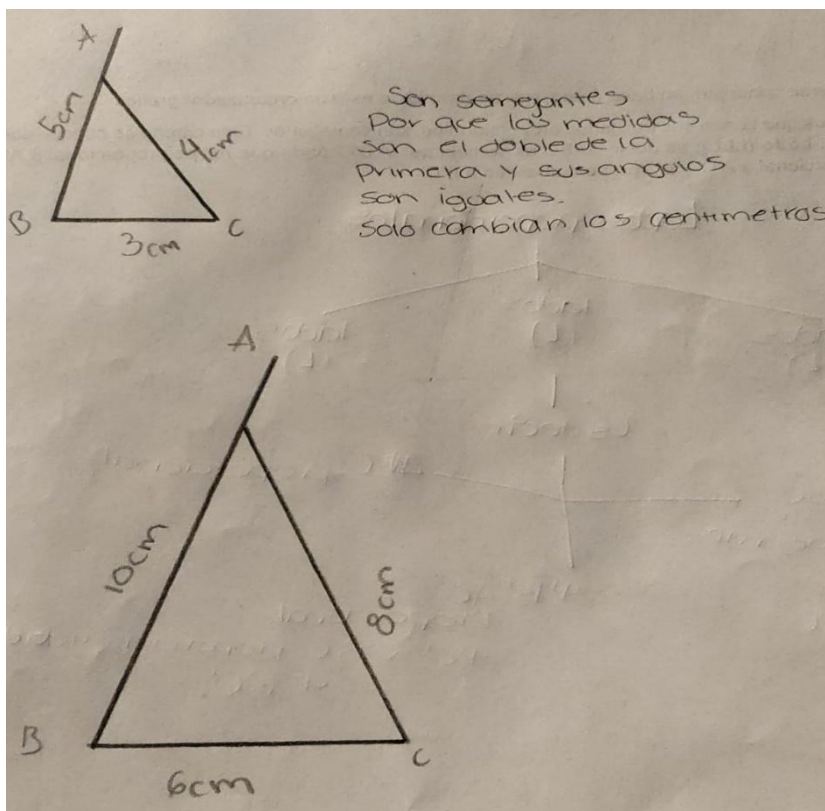 A
5cm
4cm
B
C
3cm
Son semejantes
Por que las medidas
Son el doble de la
Primera y sus angulos
son iguales.
Solo cambian los centimetros
A
10cm
8cm
B
C
6cm